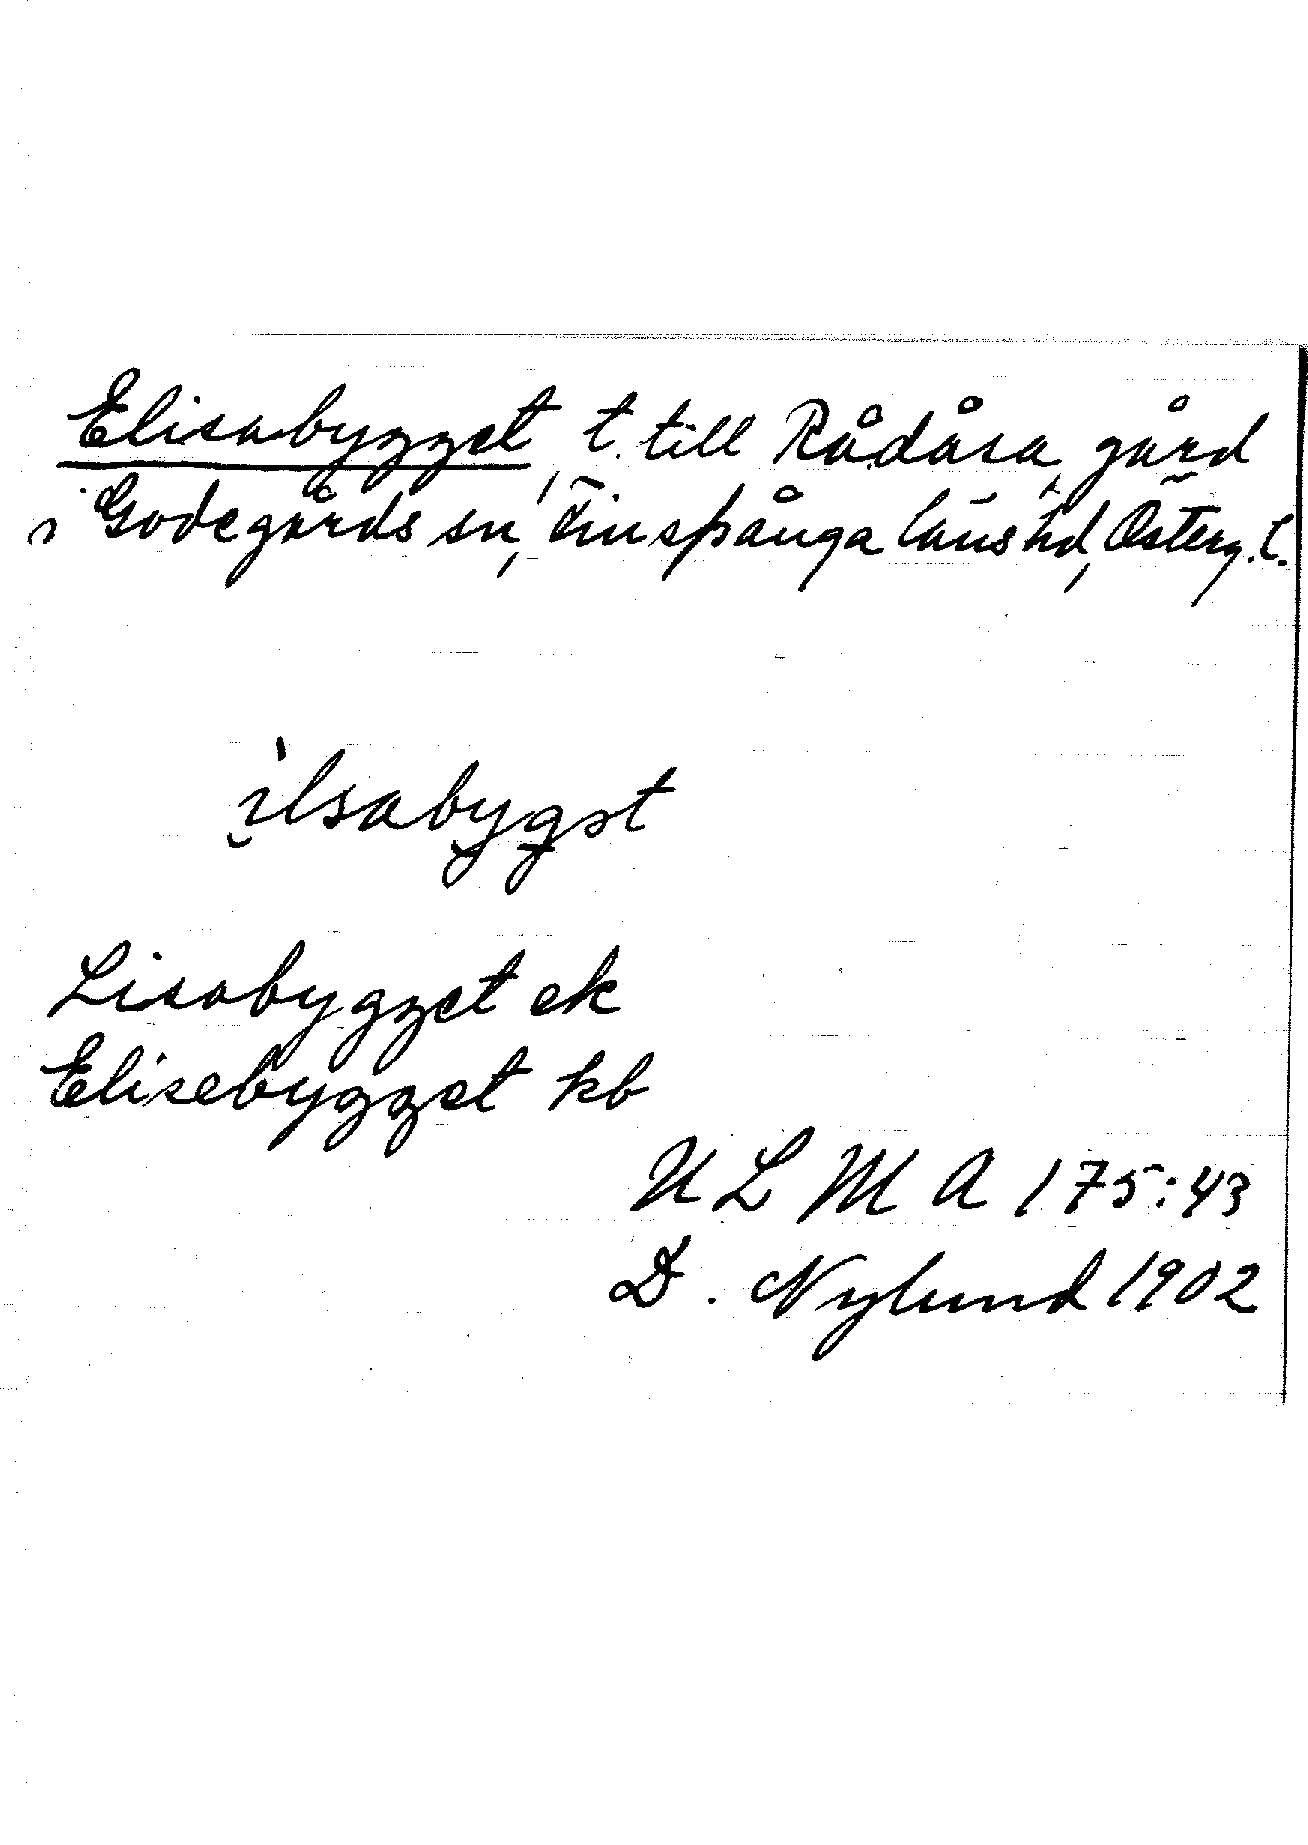 Elisabygget, t. till Rådåsa gård
i Godegårds sn, Finspånga läns hd, Österg. l.
ìlsabygət
Lisabygget ek
Elisebygget kb
ULMA 175:43
D. Nylund 1902